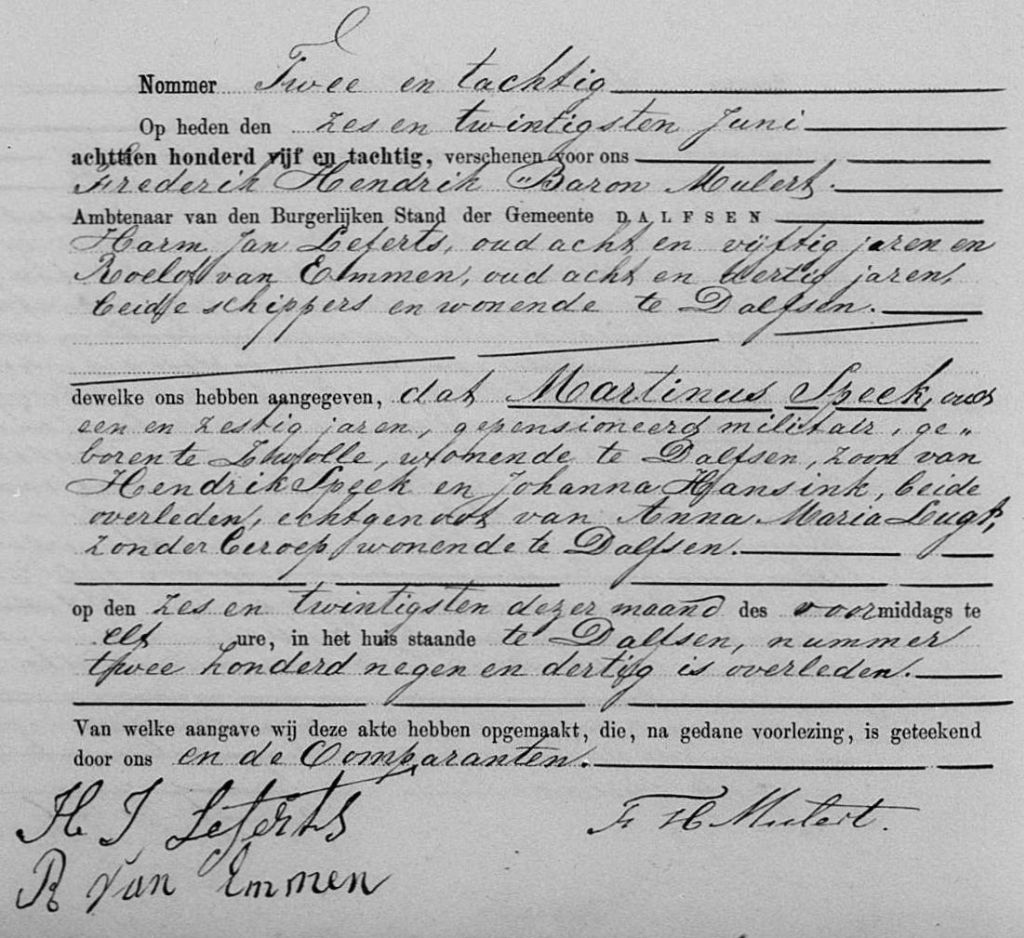 Nommer Twee en tachtig
Op heden den zes en twintigsten Juni
achttien honderd vijf en tachtig, verschenen voor ons
Frederik Hendrik Baron Mulert.
Ambtenaar van den Burgerlijken Stand der Gemeente DALFSEN
Harm Jan Leferts, oud acht en vijftig jaren en
Roelof van Emmen, oud acht en dertig jaren,
beide schippers en wonende te Dalfsen.
dewelke ons hebben aangegeven, dat Martinus Speek, oud
een en zestig jaren, gepensioneerd militair, ge„
boren te Zwolle, wonende te Dalfsen, zoon van
Hendrik Speek en Johanna Hansink, beide
overleden, echtgenoot van Anna Maria Lugt,
zonder beroep wonende te Dalfsen.
op den zes en twintigsten dezer maand des voormiddags te
elf ure, in het huis staande te Dalfsen, nummer
twee honderd negen en dertig is overleden.
Van welke aangave wij deze akte hebben opgemaakt, die, na gedane voorlezing, is geteekend
door ons en de Comparanten.
H J Leferts
F H Mulert.
R van Emmen